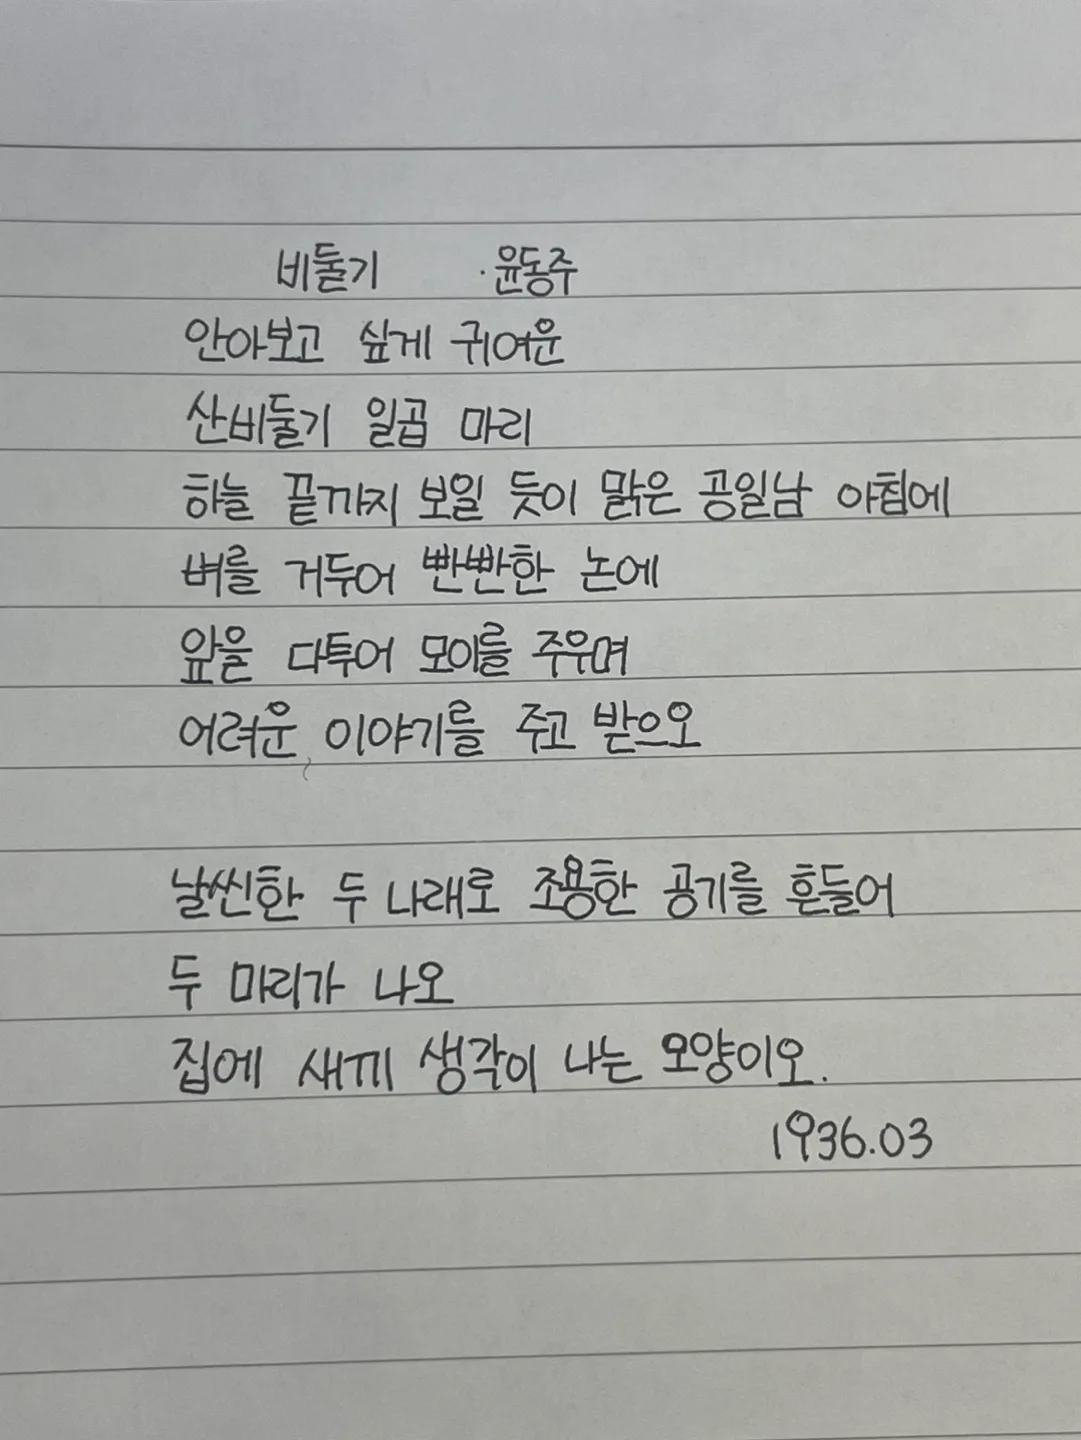 비둘기 ·윤동주
안아보고 싶게 귀여운
산비둘기 일곱 마리
하늘 끝까지 보일 듯이 맑은 공일남 아침에
벼를 거두어 빤빤한 논에
앞을 다투어 모이를 주우며
어려운 이야기를 주고 받으오
날씬한 두 나래로 조용한 공기를 흔들어
두 마리가 나오
집에 새끼 생각이 나는 모양이오.
1936.03